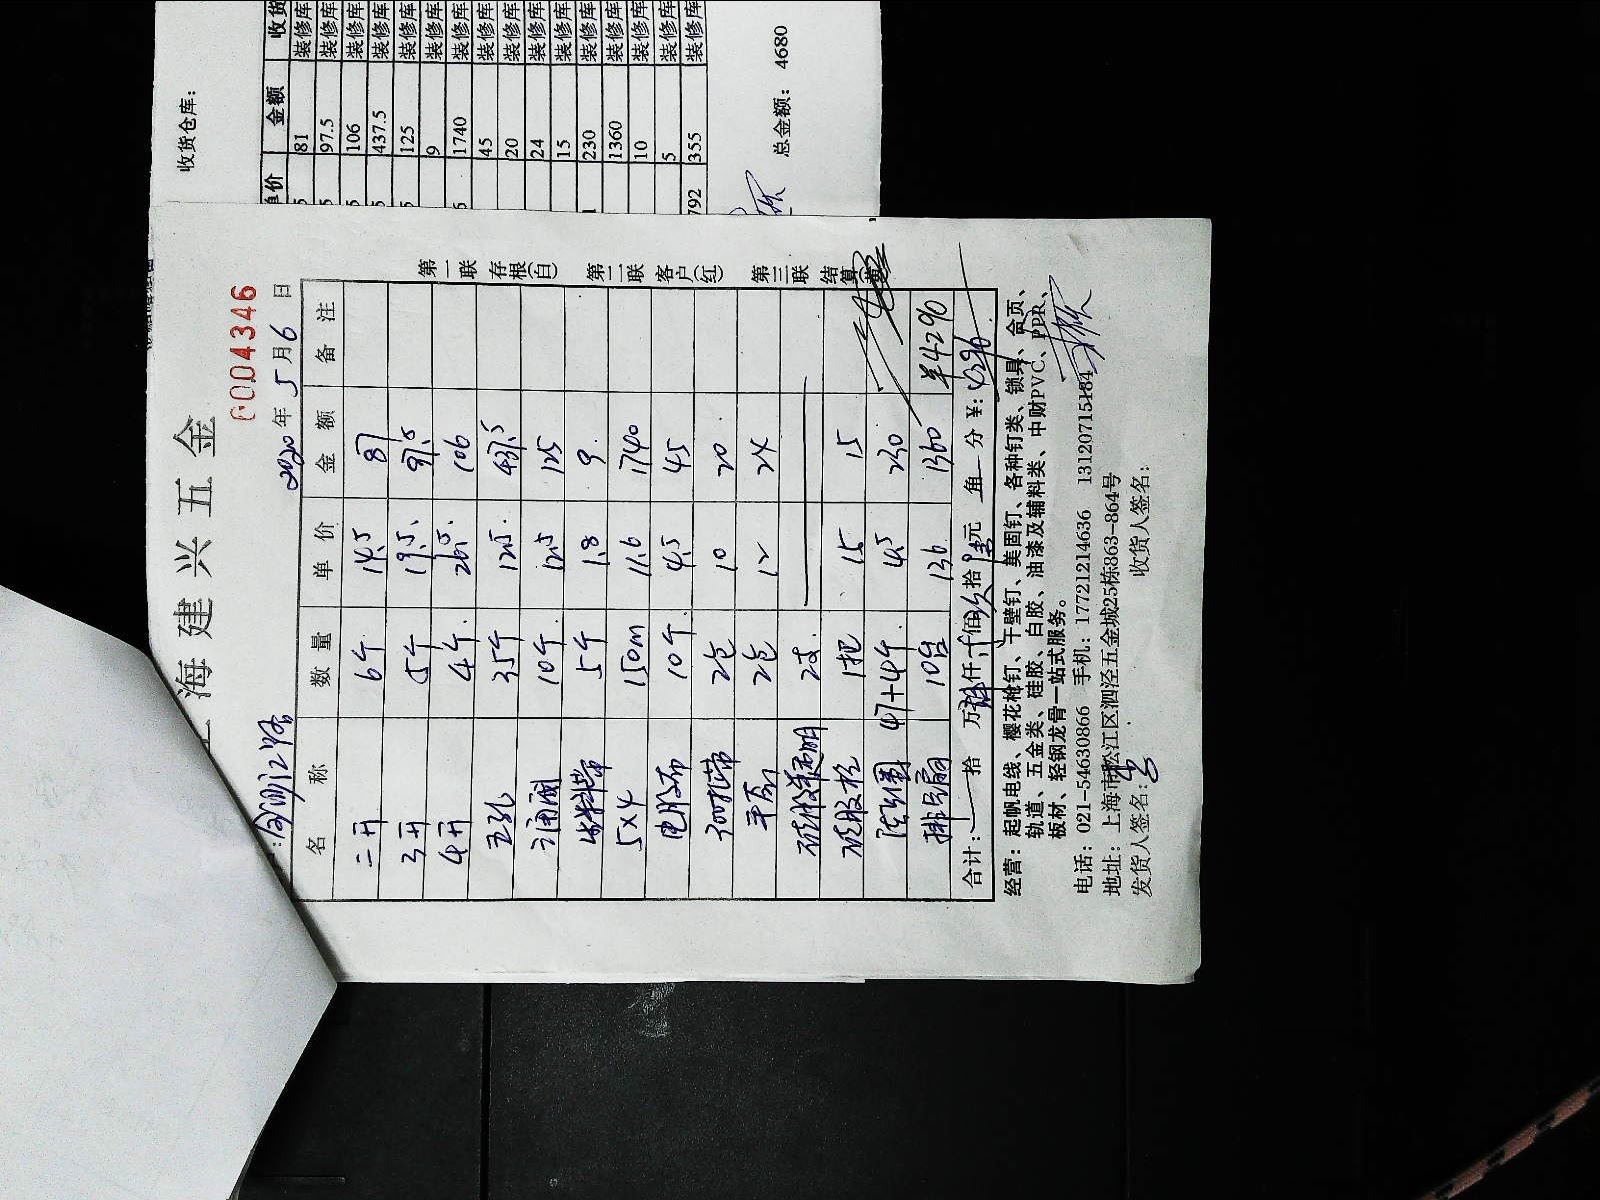 收货仓库：
单价 金额 收货
5 81 装修库
5 97.5 装修库
5 106 装修库
5 437.5 装修库
5 125 装修库
9 装修库
6 1740 装修库
45 装修库
20 装修库
24 装修库
15 装修库
230 装修库
1360 装修库
10 装修库
5 装修库
792 355 装修库
总金额： 4680
海建兴五金
0004346
2020年5月6日
名称 数量 单价 金额 备注
二开 6个 14.5 87
3开 5个 19.5 97.5
4开 4个 26.5 106
五孔 35个 12.5 437.5
10个 12.5 125
5个 1.8 9
5×4 150m 11.6 1740
电胶布 10个 4.5 45
300扎带 2包 10 20
手套 2包 12 24
2支
硅胶枪 1把 15 15
47+4个 4.5 230
排气扇 10台 136 1360 ¥4290
合计： 拾 万 仟 佰 拾 元 角 分 ¥：4290
第一联 存根（白） 第二联 客户（红） 第三联 结算（黄）
经营：起帆电线、樱花枪钉、干壁钉、美固钉、各种钉类、锁具、合页、
轨道、五金类、硅胶、白胶、油漆及辅料类、中财PVC、PPR、
板材、轻钢龙骨一站式服务。
电话：021-54630866 手机：17721214636 13120715184
地址：上海市松江区泗泾五金城25栋863-864号
发货人签名： 收货人签名：